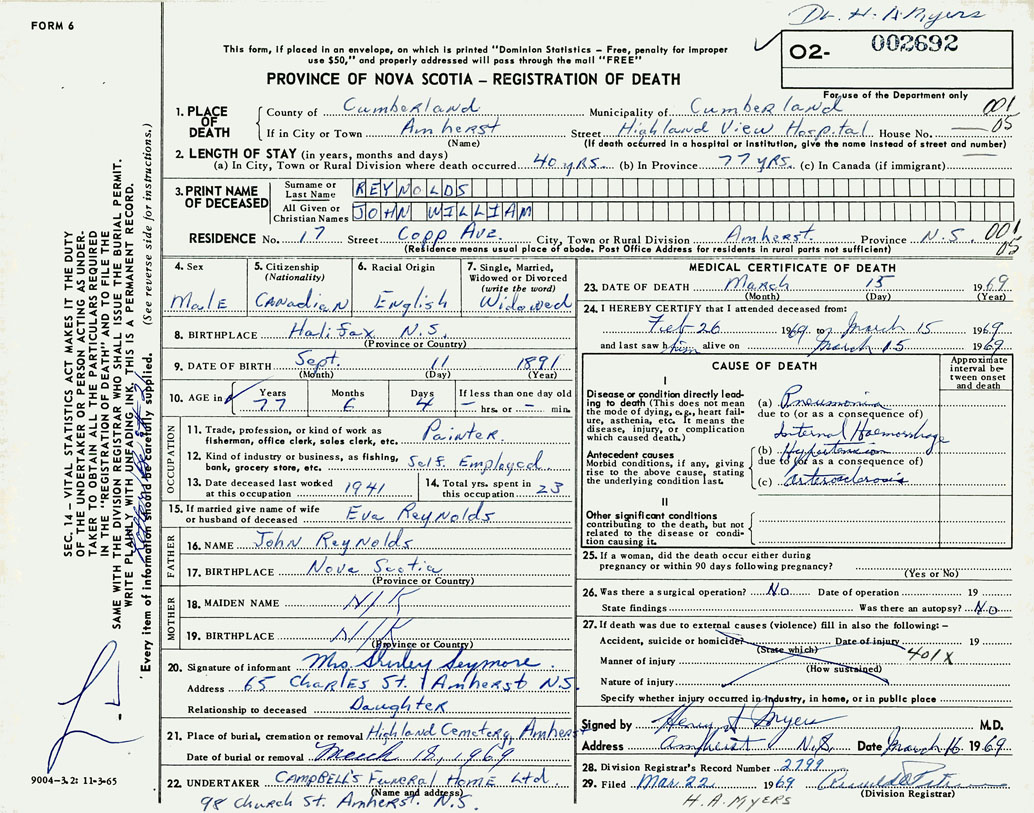 Dr. H. A Myers
FORM 6
This form, if placed in an envelope, on which is printed "Dominion Statistics – Free, penalty for improper
use $50," and properly addressed will pass through the mail "FREE"
PROVINCE OF NOVA SCOTIA – REGISTRATION OF DEATH
O2- 002692
For use of the Department only
1. PLACE OF DEATH
County of Cumberland Municipality of Cumberland 001
If in City or Town Amherst Street Highland View Hospital House No. — 05
(Name) (If death occurred in a hospital or institution, give the name instead of street and number)
2. LENGTH OF STAY (in years, months and days)
(a) In City, Town or Rural Division where death occurred 40 yrs. (b) In Province 77 yrs. (c) In Canada (if immigrant) —
3. PRINT NAME OF DECEASED
Surname or Last Name REYNOLDS
All Given or Christian Names JOHN WILLIAM
RESIDENCE No. 17 Street Copp Ave. City, Town or Rural Division Amherst. Province N.S. 001
(Residence means usual place of abode. Post Office Address for residents in rural parts not sufficient) 05
4. Sex
Male
5. Citizenship
(Nationality)
Canadian
6. Racial Origin
English
7. Single, Married,
Widowed or Divorced
(write the word)
Widowed
8. BIRTHPLACE Halifax N.S.
(Province or Country)
9. DATE OF BIRTH Sept. 11 1891
(Month) (Day) (Year)
10. AGE in Years Months Days If less than one day old
77 6 4 – hrs. or – min.
OCCUPATION
11. Trade, profession, or kind of work as
fisherman, office clerk, sales clerk, etc. Painter.
12. Kind of industry or business, as fishing,
bank, grocery store, etc. Self Employed
13. Date deceased last worked
at this occupation 1941
14. Total yrs. spent in
this occupation 23
15. If married give name of wife
or husband of deceased Eva Reynolds
FATHER
16. NAME John Reynolds
17. BIRTHPLACE Nova Scotia
(Province or Country)
MOTHER
18. MAIDEN NAME N/K
19. BIRTHPLACE N/K
(Province or Country)
20. Signature of informant Mrs. Shirley Seymore.
Address 65 Charles St. Amherst N.S.
Relationship to deceased Daughter
21. Place of burial, cremation or removal Highland Cemetery, Amherst
Date of burial or removal March 18, 1969
22. UNDERTAKER Campbell's Funeral Home Ltd.
(Name and address)
98 Church St. Amherst. N.S.
MEDICAL CERTIFICATE OF DEATH
23. DATE OF DEATH March 15 1969
(Month) (Day) (Year)
24. I HEREBY CERTIFY that I attended deceased from:
Feb 26 1969 to March 15 1969
and last saw him alive on March 15 1969
CAUSE OF DEATH
Approximate
interval be-
tween onset
and death
I
Disease or condition directly lead-
ing to death (This does not mean
the mode of dying, e.g., heart fail-
ure, asthenia, etc. It means the
disease, injury, or complication
which caused death.)
Antecedent causes
Morbid conditions, if any, giving
rise to the above cause, stating
the underlying condition last.
(a) Pneumonia
due to (or as a consequence of)
Internal Haemorrhage
(b) Hypertension
due to (or as a consequence of)
(c) Arterosclerosis
II
Other significant conditions
contributing to the death, but not
related to the disease or condi-
tion causing it.
25. If a woman, did the death occur either during
pregnancy or within 90 days following pregnancy?
(Yes or No)
26. Was there a surgical operation? No Date of operation 19
State findings Was there an autopsy? No
27. If death was due to external causes (violence) fill in also the following: –
Accident, suicide or homicide? Date of injury 19
(State which) 401X
Manner of injury
(How sustained)
Nature of injury
Specify whether injury occurred in industry, in home, or in public place
Signed by Henry A Myers M.D.
Address Amherst N.S. Date March 16 1969
28. Division Registrar's Record Number 2799
29. Filed Mar. 22 1969
(Division Registrar)
H. A. MYERS
SEC. 14 – VITAL STATISTICS ACT MAKES IT THE DUTY
OF THE UNDERTAKER OR PERSON ACTING AS UNDER-
TAKER TO OBTAIN ALL THE PARTICULARS REQUIRED
IN THE "REGISTRATION OF DEATH" AND TO FILE THE
SAME WITH THE DIVISION REGISTRAR WHO SHALL ISSUE THE BURIAL PERMIT.
WRITE PLAINLY WITH UNFADING INK. THIS IS A PERMANENT RECORD.
Every item of information should be carefully supplied. (See reverse side for instructions.)
9004-3.2: 11-3-65